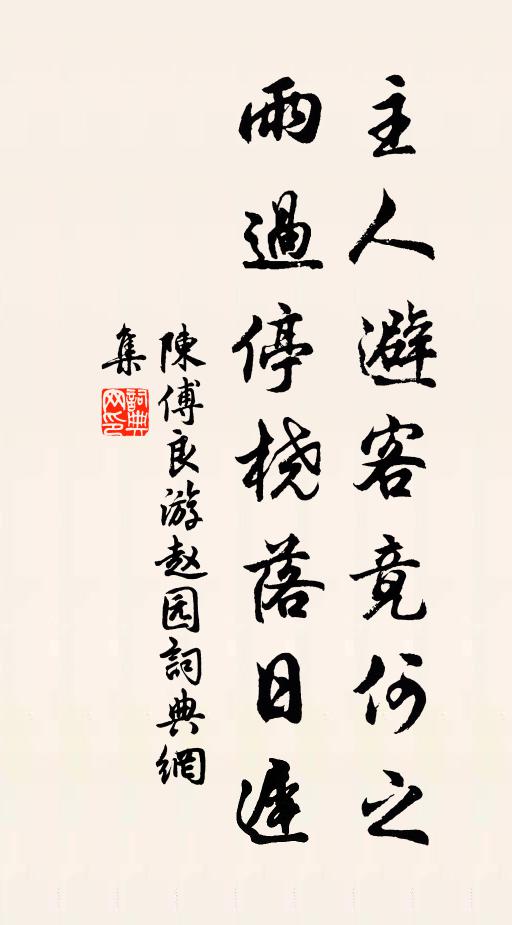 主人避客竟何之
雨過停桡落日遲
陳傅良游赵园詞典網
集
詞典網印